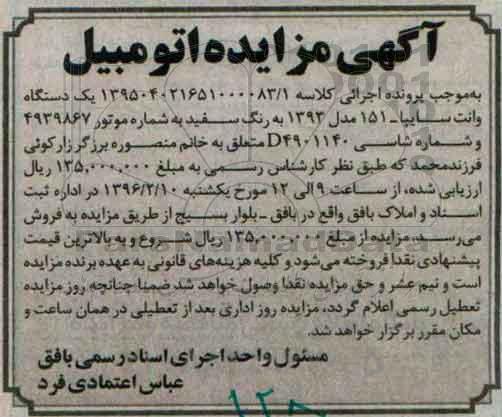 آگهی مزایده اتومبیل
به‌موجب پرونده اجرائی کلاسه ۱۳۹۵۰۴۰۲۱۶۵۱۰۰۰۰۸۳/۱ یک دستگاه
وانت سایپا - ۱۵۱ مدل ۱۳۹۳ به رنگ سفید به شماره موتور ۴۹۳۹۸۶۷
و شماره شاسی D۴۹۰۱۱۴۰ متعلق به خانم منصوره برزگر زارکوئی
فرزند محمد که طبق نظر کارشناس رسمی به مبلغ ۱۳۵,۰۰۰,۰۰۰ ریال
ارزیابی شده، از ساعت ۹ الی ۱۲ مورخ یکشنبه ۱۳۹۶/۲/۱۰ در اداره ثبت
اسناد و املاک بافق واقع در بافق - بلوار بسیج از طریق مزایده به فروش
می‌رسد. مزایده از مبلغ ۱۳۵,۰۰۰,۰۰۰ ریال شروع و به بالاترین قیمت
پیشنهادی نقدا فروخته می‌شود و کلیه هزینه‌های قانونی به عهده برنده مزایده
است و نیم عشر و حق مزایده نقدا وصول خواهد شد ضمنا چنانچه روز مزایده
تعطیل رسمی اعلام گردد، مزایده روز اداری بعد از تعطیلی در همان ساعت و
مکان مقرر برگزار خواهد شد.
مسئول واحد اجرای اسناد رسمی بافق
عباس اعتمادی فرد